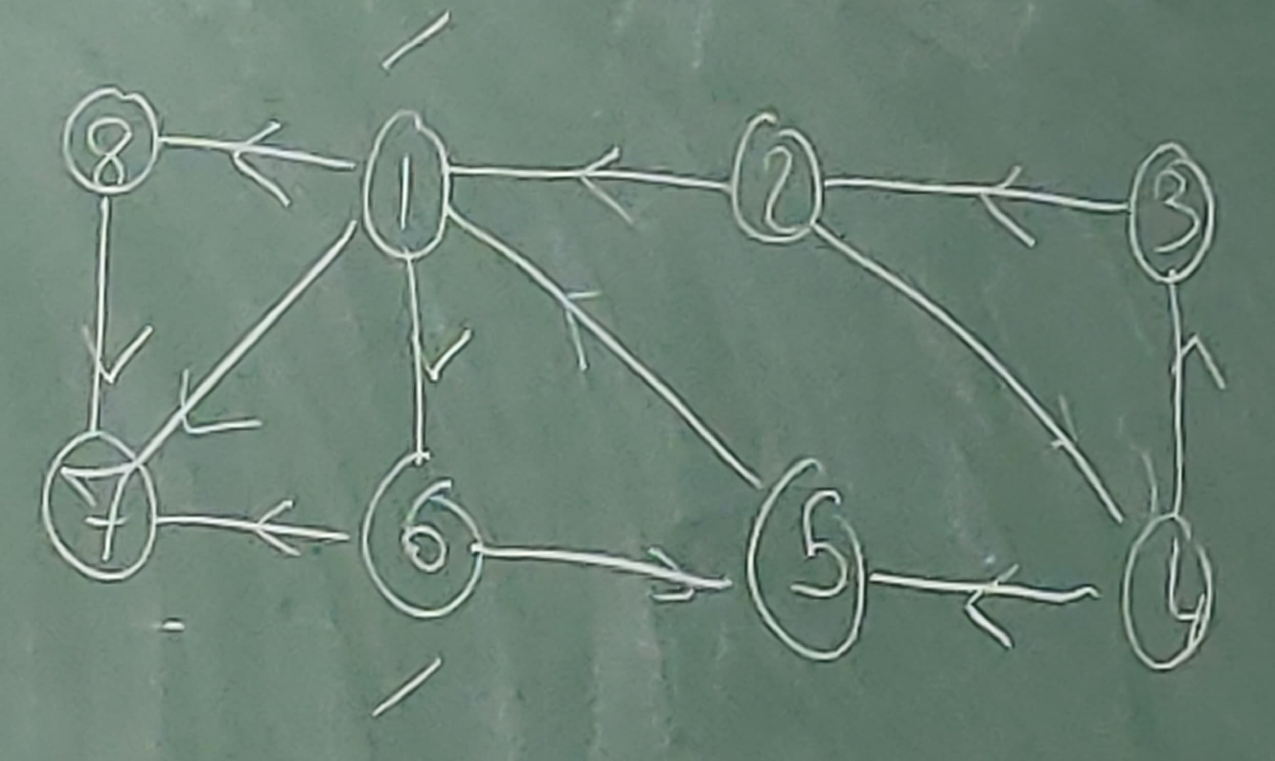 8 1 2 3
7 6 5 4